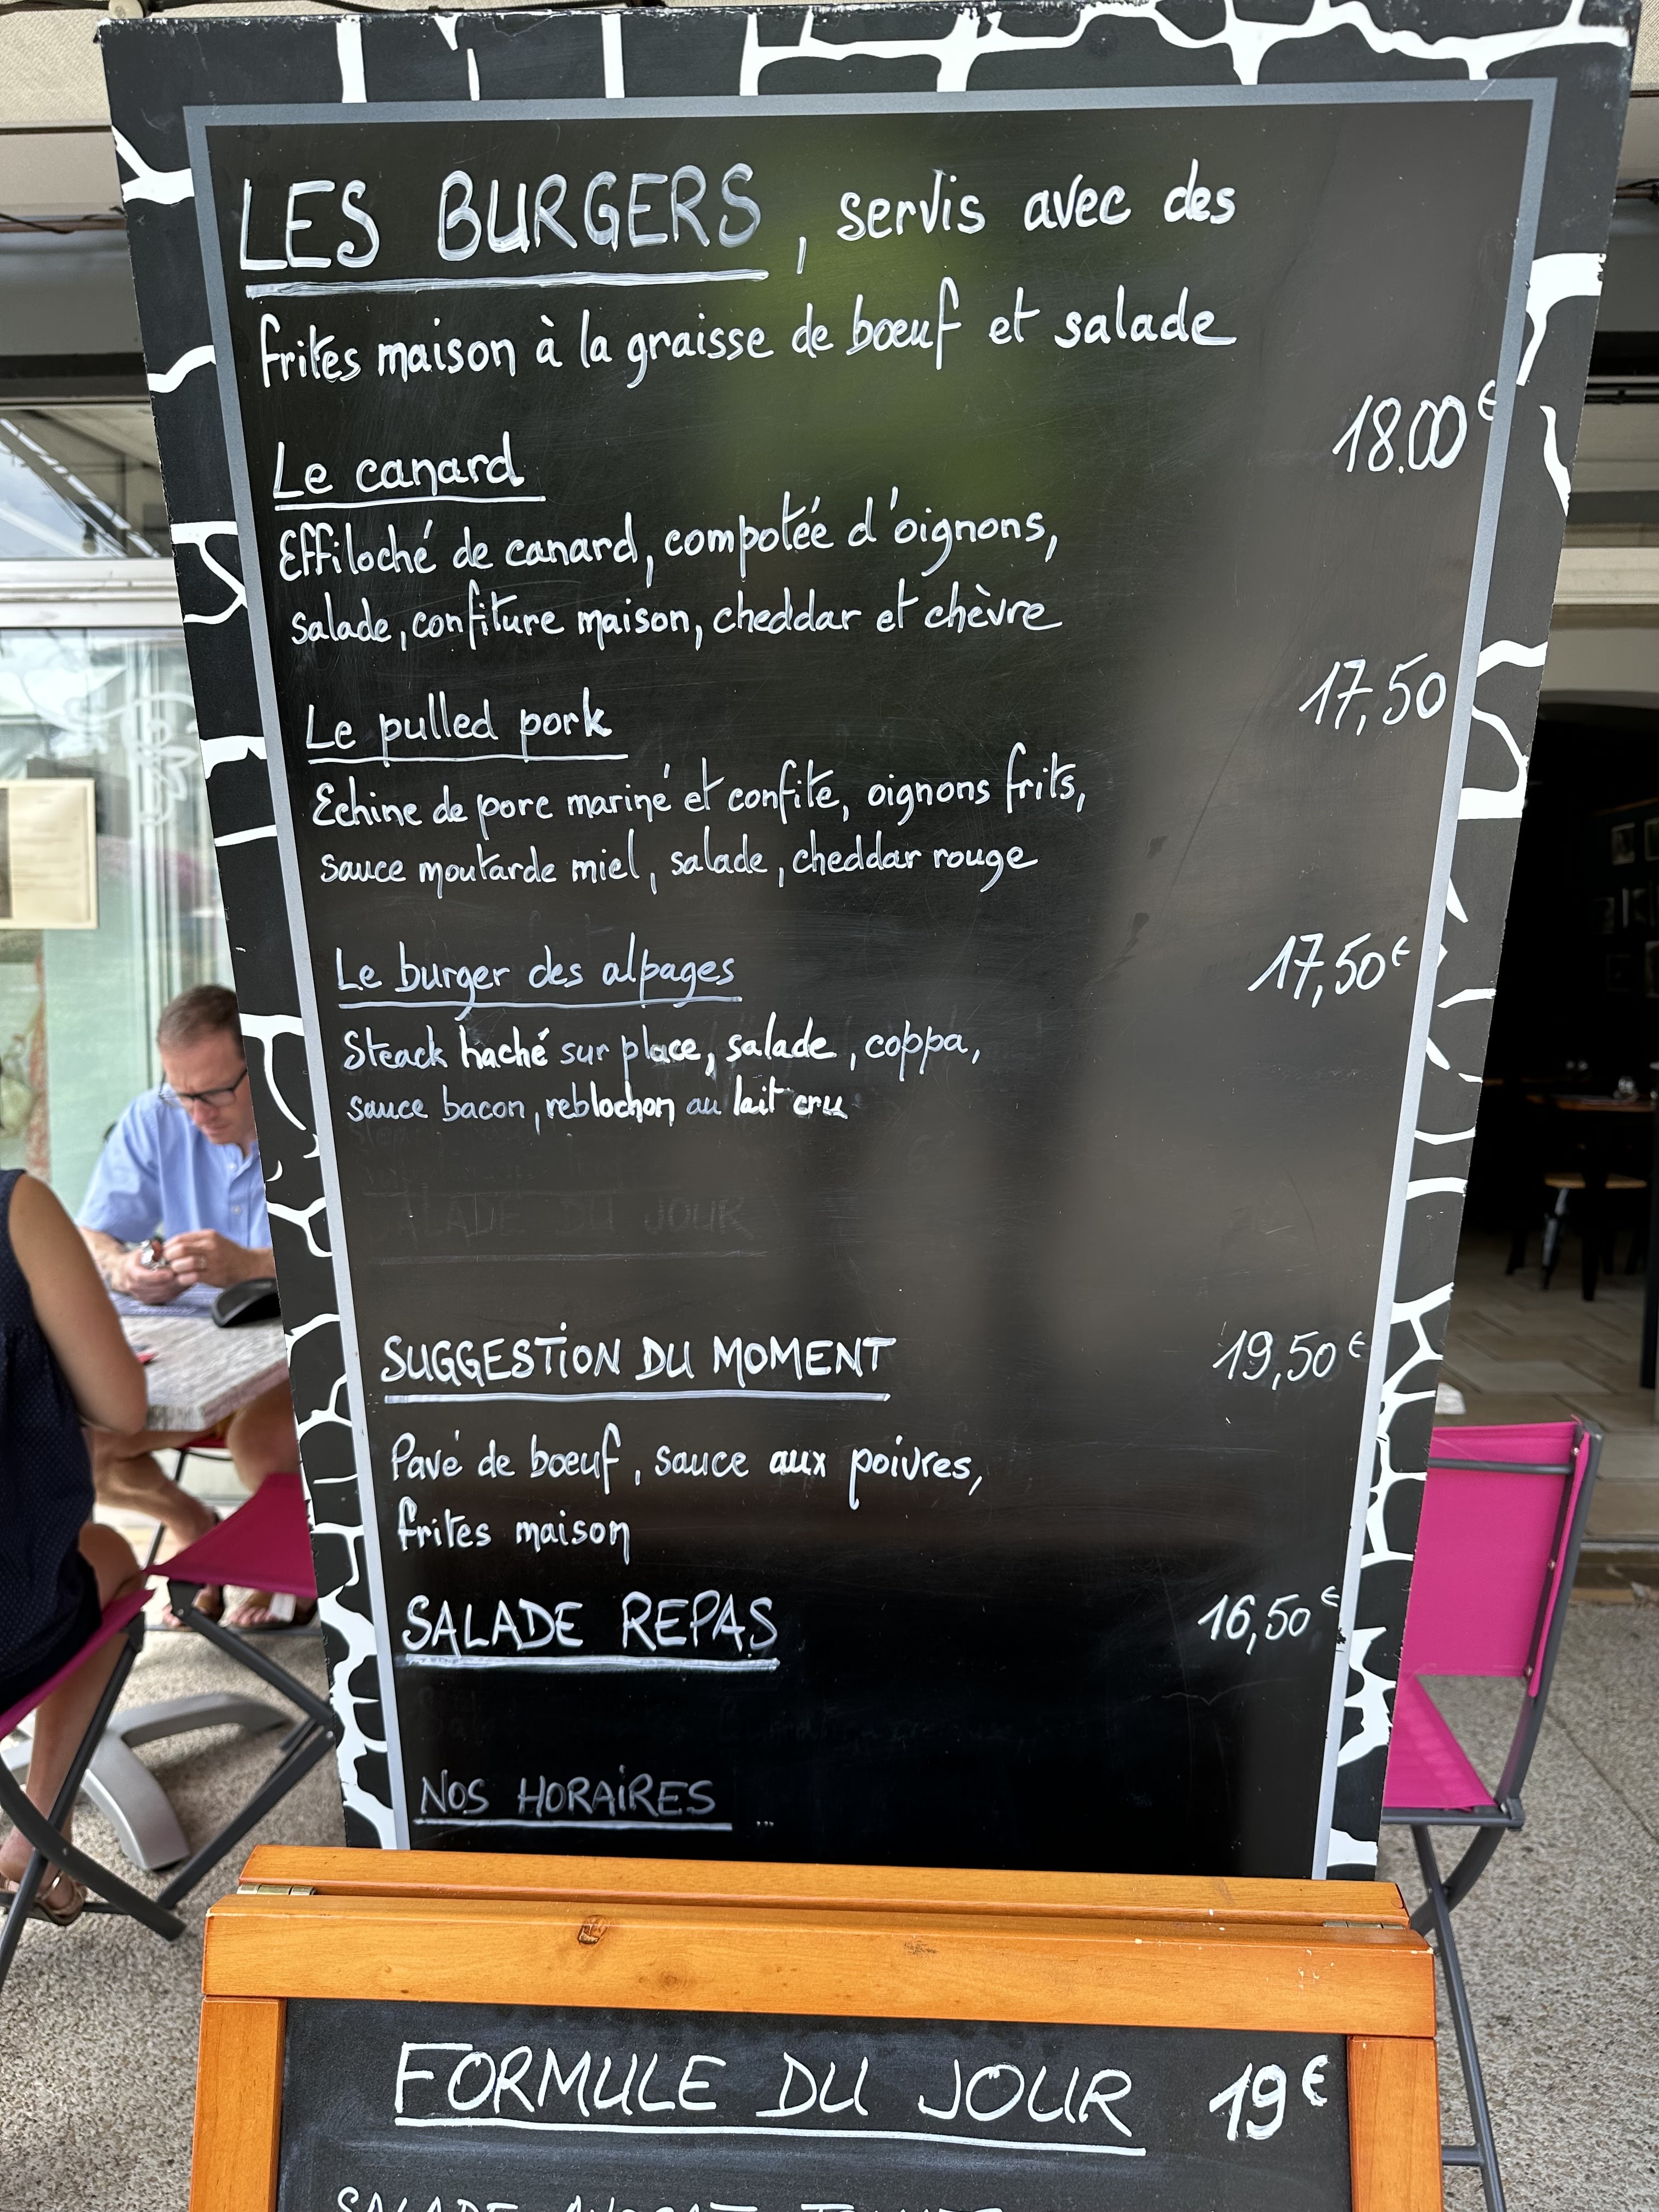 LES BURGERS, servis avec des
frites maison à la graisse de bœuf et salade
18.00€
Le canard
Effiloché de canard, compotée d'oignons,
salade, confiture maison, cheddar et chèvre
17,50
Le pulled pork
Echine de porc mariné et confite, oignons frits,
sauce moutarde miel, salade, cheddar rouge
Le burger des alpages 17,50€
Steack haché sur place, salade, coppa,
sauce bacon, reblochon au lait cru
SALADE DU JOUR
SUGGESTION DU MOMENT 19,50€
Pavé de bœuf, sauce aux poivres,
frites maison
SALADE REPAS 16,50€
NOS HORAIRES ...
FORMULE DU JOUR 19€
SALADE